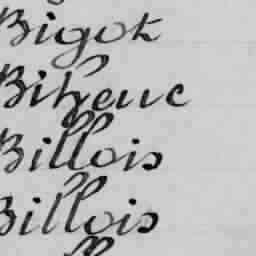 Bigot
Biheuc
Billois
Billois